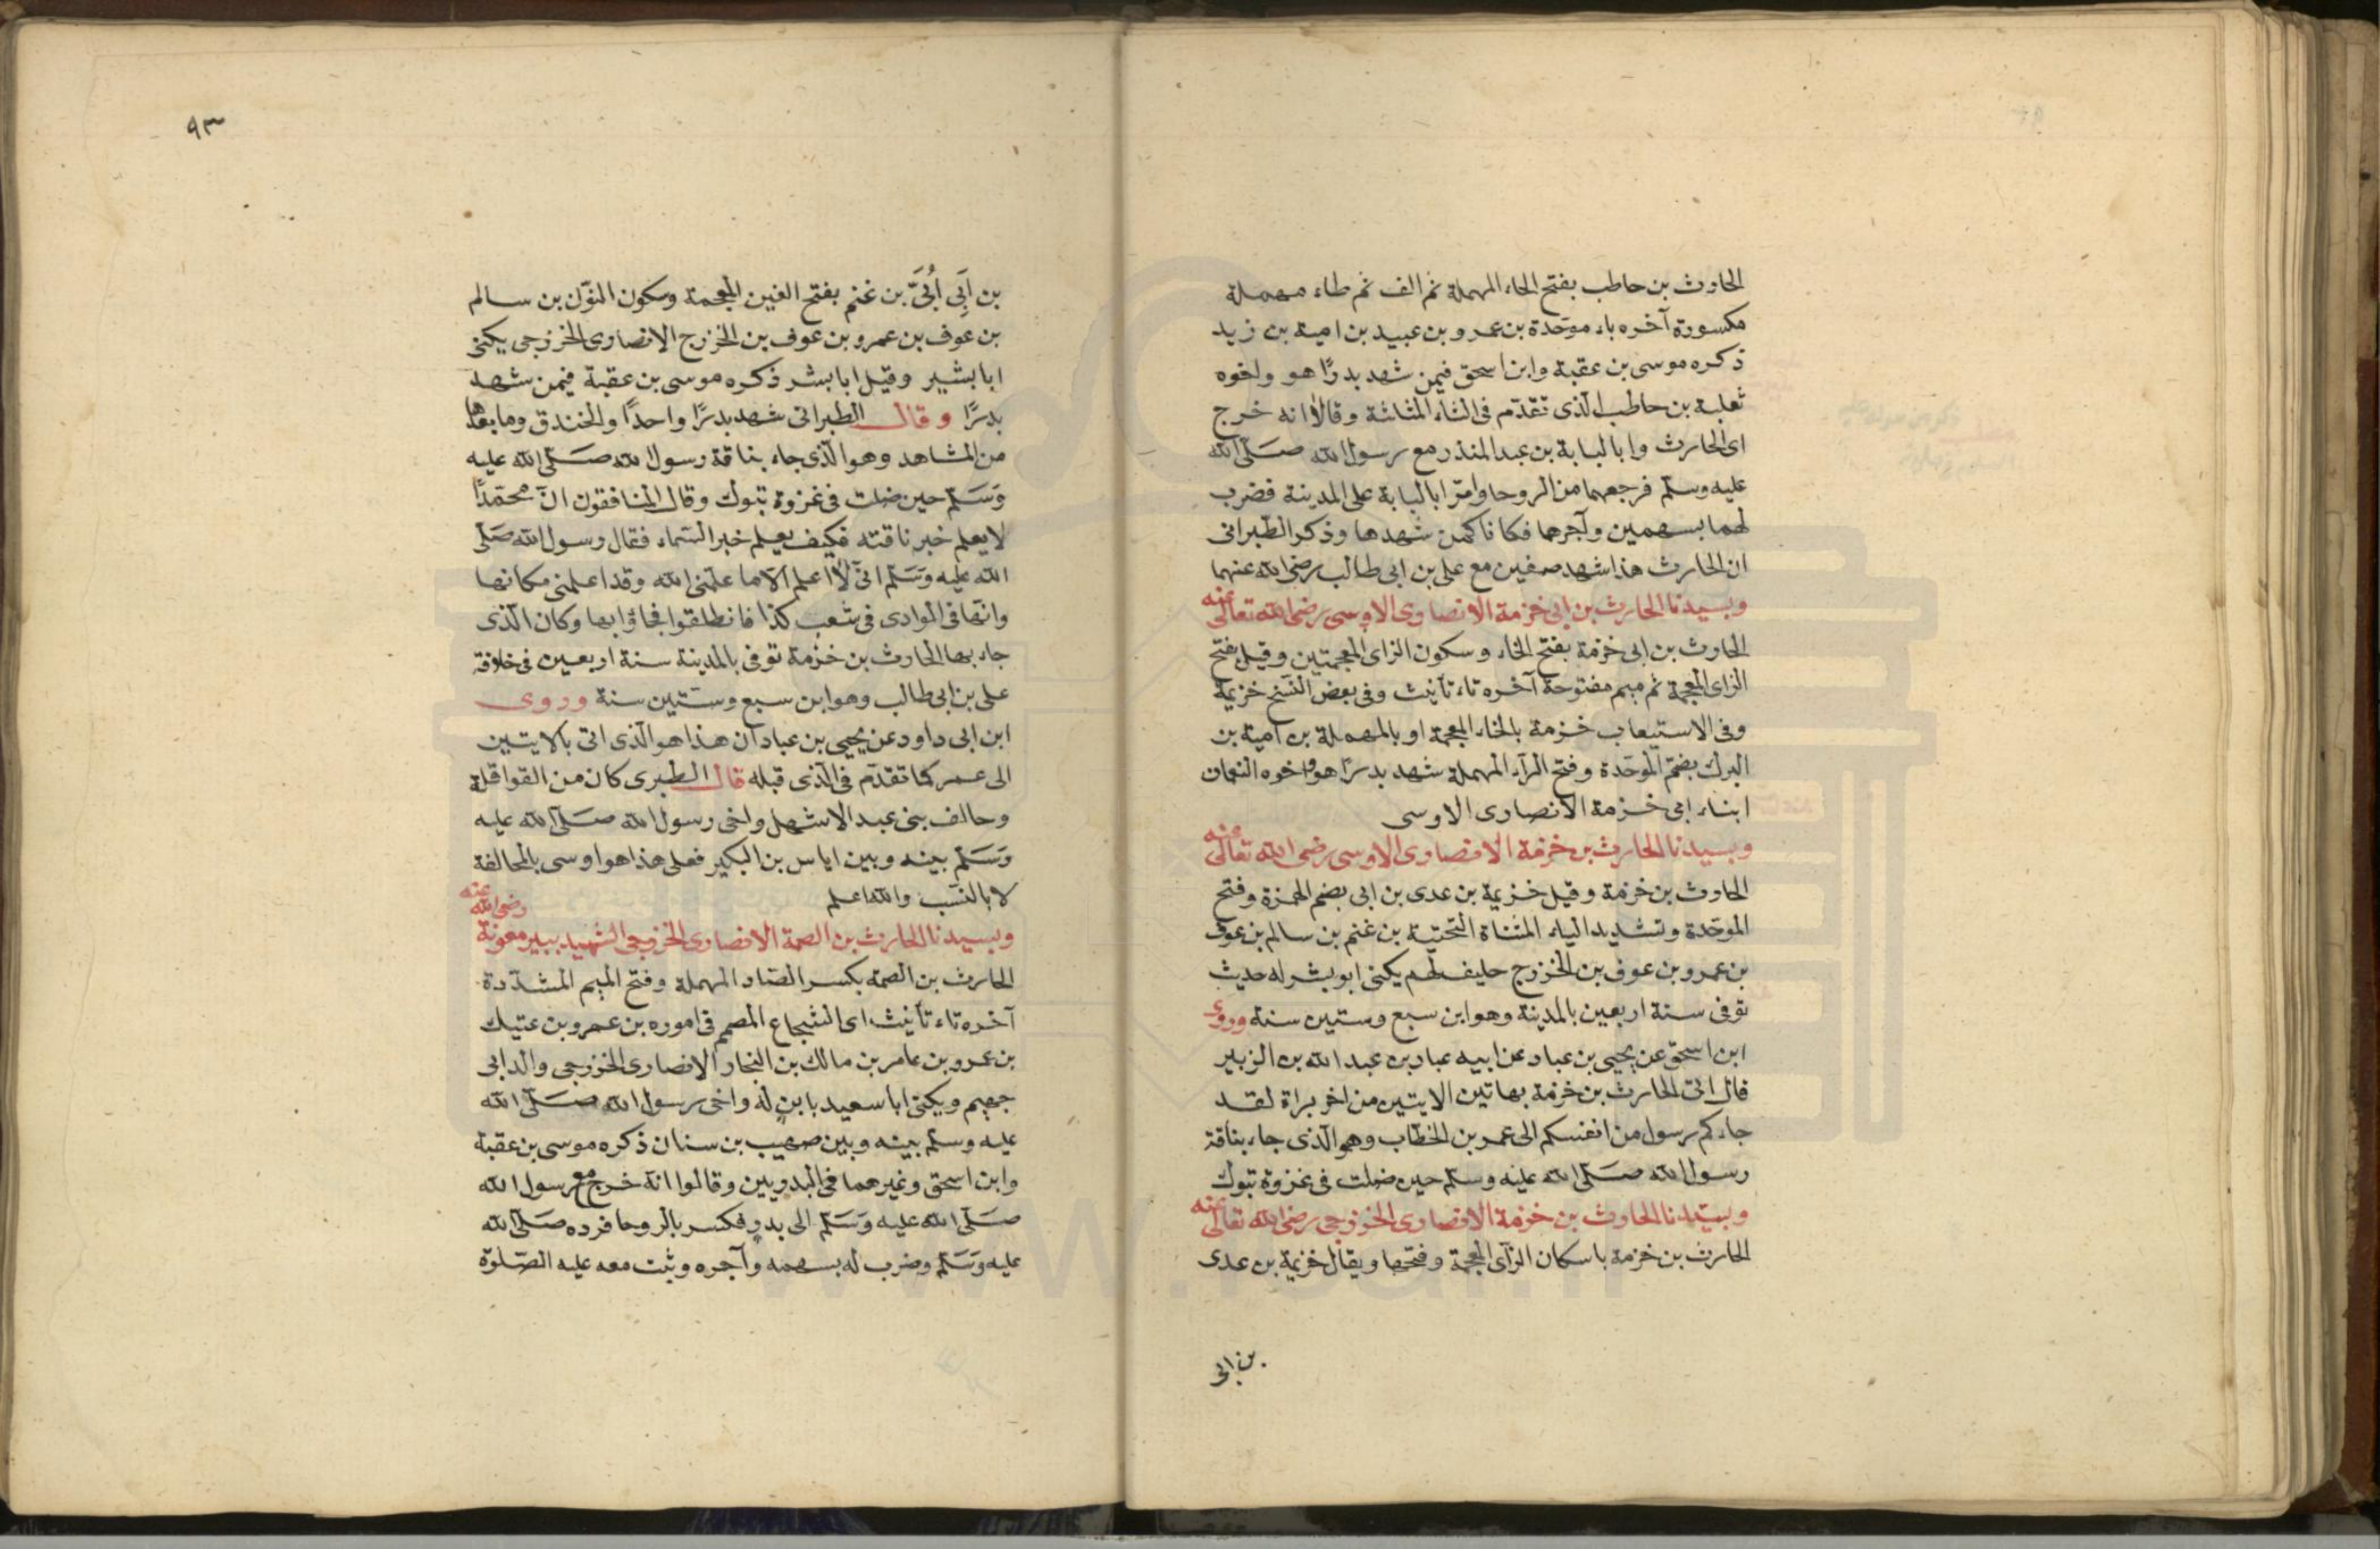 الحارث بن حاطب بفتح الحاء المهملة ثم الف ثم طاء مهملة
مكسورة آخره باء موحّدة بن عمرو بن عبيد بن امية بن زيد
ذكره موسى بن عقبة وابن اسحق فيمن شهد بدرًا هو واخوه
ثعلبة بن حاطب الّذى تقدّم فى الثاء المثلثة وقالا انه خرج
اى الحارث وابا لبابة بن عبد المنذر مع رسول الله صَلّى الله
عليه وسلّم فرجعهما من الروحا وامّر ابا لبابة على المدينة فضرب
لهما بسهمين وآجرهما فكانا كمن شهدها وذكر الطّبرانى
ان الحارث هذا شهد صفين مع على بن ابى طالب رضى الله عنهما
وبسيدنا الحارث بن ابى خزمة الانصارى الاوسى رضى الله تعالى عنه
الحارث بن ابى خزمة بفتح الخاء وسكون الزاى المعجمتين وقيل بفتح
الزاى المعجمة ثم ميم مفتوحة آخره تاء تأنيث وفى بعض النّسخ خزيمة
وفى الاستيعاب خزمة بالخاء المعجمة او بالمهملة بن امية بن
البرك بضمّ الموحّدة وفتح الرآء المهملة شهد بدرًا هو واخوه النعمان
ابناء ابى خزمة الانصارى الاوسى
وبسيدنا الحارث بن خزمة الانصارى الاوسى رضى الله تعالى عنه
الحارث بن خزمة وقيل خزيمة بن عدى بن ابى بضم الهمزة وفتح
الموحّدة وتشديد الياء المثناة التّحتية بن غنم بن سالم بن عوف
بن عمرو بن عوف بن الخزرج حليف لهم يكنى ابو بشر له حديث
توفى سنة اربعين بالمدينة وهو ابن سبع وستين سنة وروى
ابن اسحق عن يحيى بن عباد عن ابيه عباد بن عبد الله بن الزبير
قال اتى الحارث بن خزمة بهاتين الايتين من اخر براة لقد
جاءكم رسول من انفسكم الى عمر بن الخطّاب وهو الّذى جاء بناقة
رسول الله صَلّى الله عليه وسلّم حين ضلت فى غزوة تبوك
وبسيّدنا الحارث بن خزمة الانصارى الخزرجى رضى الله تعالى عنه
الحارث بن خزمة باسكان الزآى المعجمة وفتحها ويقال خزيمة بن عدى
بن ابى
٩٣
بن اَبِى اُبَىّ بن غنم بفتح الغين المعجمة وسكون النوّن بن سالم
بن عوف بن عمرو بن عوف بن الخزرج الانصارى الخزرجى يكنى
ابا بشير وقيل ابا بشر ذكره موسى بن عقبة فيمن شهد
بدرًا وقال الطبرانى شهد بدرًا واحدًا والخندق وما بعدها
من المشاهد وهو الّذى جاء بناقة رسول الله صَلّى الله عليه
وَسَلّم حين ضلت فى غزوة تبوك وقال المنافقون انّ محمّدًا
لا يعلم خبر ناقته فكيف يعلم خبر السّماء فقال رسول الله صَلّى
الله عليه وَسَلّم انىّ لا اعلم الّا ما علّمنى الله وقد اعلمنى مكانها
وانّها فى الوادى فى شعب كذا فانطلقوا فجاؤا بها وكان الّذى
جاء بها الحارث بن خزمة توفى بالمدينة سنة اربعين فى خلافة
على بن ابى طالب وهو ابن سبع وستّين سنة وروى
ابن ابى داود عن يحيى بن عباد ان هذا هو الّذى اتى بالايتين
الى عمر كما تقدّم فى الّذى قبله قال الطبرى كان من القواقلة
وحالف بنى عبد الاشهل واخى رسول الله صَلّى الله عليه
وَسَلّم بينه وبين اياس بن البكير فعلى هذا هو اوسى بالمحالفة
لا بالنسّب والله اعلم
وبسيدنا الحارث بن الصمة الانصارى الخزرجى الشهيد ببير معونة رضى الله عنه
الحارث بن الصمة بكسر الصّاد المهملة وفتح الميم المشدّدة
آخره تاء تأنيث اى الشجاع المصمم فى اموره بن عمرو بن عتيك
بن عمرو بن عامر بن مالك بن النجار الانصارى الخزرجى والد ابى
جهيم ويكنى ابا سعيد بابنٍ له واخى رسول الله صَلّى الله
عليه وسلّم بينه وبين صهيب بن سنان ذكره موسى بن عقبة
وابن اسحق وغيرهما فى البدريين وقالوا انّه خرج مع رسول الله
صَلّى الله عليه وَسَلّم الى بدرٍ فكسر بالروحا فرده صَلّى الله
عليه وَسَلّم وضرب له بسهمه وآجره وثبت معه عليه الصّلوة